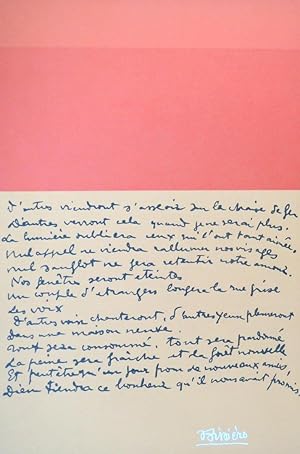 D'autres viendront s'asseoir sur la chaise de fer
D'autres verront cela quand je ne serai plus.
La lumière oubliera ceux qui l'ont tant aimée.
Nul appel ne viendra rallumer nos visages
nul sanglot ne fera retentir notre amour.
Nos fenêtres seront éteintes
un couple d'étrangers longera la rue grise
Les voix
D'autres voix chanteront, d'autres yeux pleureront
Dans une maison neuve.
Tout sera consommé, tout sera pardonné
La peine sera fraîche et la forêt nouvelle
Et peut-être qu'un jour pour de nouveaux amis,
Dieu tiendra ce bonheur qu'il nous avait promis.